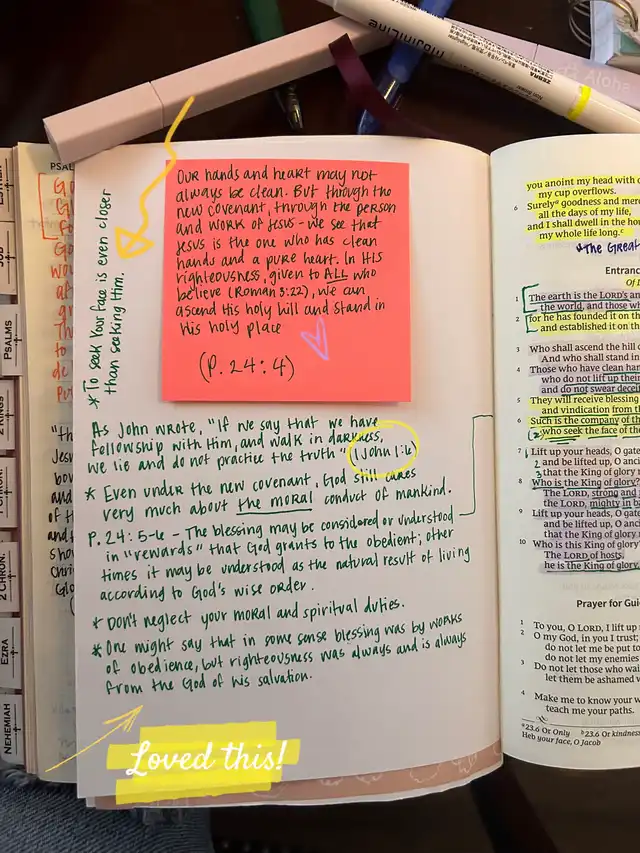 mojiniLine
ZEBRA
Aloha
PSAL
ESTHER
JOB
PSALMS
2 KINGS
1 CHRON.
2 CHRON.
EZRA
NEHEMIAH
* To seek Your face is even closer
than seeking Him.
Our hands and heart may not
always be clean. But through the
new covenant, through the person
and work of Jesus - we see that
Jesus is the one who has clean
hands and a pure heart. In His
righteousness, given to ALL who
believe (Roman 3:22), we can
ascend His holy hill and stand in
His holy place
(P. 24:4)
As John wrote, "If we say that we have
fellowship with Him, and walk in darkness,
we lie and do not practice the truth" (1 John 1:6)
* Even under the new covenant, God still cares
very much about the moral conduct of mankind.
P. 24: 5-6 - The blessing may be considered or understood
in "rewards" that God grants to the obedient; other
times it may be understood as the natural result of living
according to God's wise order.
* Don't neglect your moral and spiritual duties.
* One might say that in some sense blessing was by works
of obedience, but righteousness was always and is always
from the God of his salvation.
Loved this!
you anoint my head with o
my cup overflows.
6 Surely goodness and mer
all the days of my life,
and I shall dwell in the hou
my whole life long.c
*The Great
Entran
Of D
1 The earth is the LORD's an
the world, and those wh
2 for he has founded it on th
and established it on th
3 Who shall ascend the hill o
And who shall stand in
4 Those who have clean han
who do not lift up thei
and do not swear deceit
5 They will receive blessing
and vindication from th
6 Such is the company of th
who seek the face of the
7 Lift up your heads, O gate
and be lifted up, O anc
that the King of glory m
8 Who is the King of glory?
The LORD, strong and
the LORD, mighty in ba
9 Lift up your heads, O gate
and be lifted up, O anc
that the King of glory
10 Who is this King of glory
The LORD of hosts,
he is the King of glory.
Prayer for Gui
1 To you, O LORD, I lift up m
2 O my God, in you I trust;
do not let me be put to
do not let my enemies
3 Do not let those who wai
let them be ashamed w
4 Make me to know your w
teach me your paths.
a 23.6 Or Only b 23.6 Or kindness
Heb your face, O Jacob